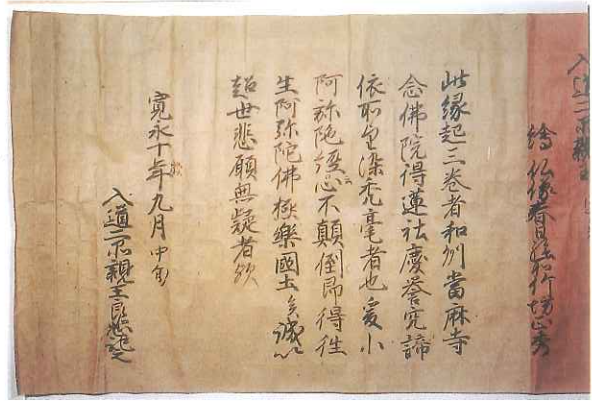 入道二品親王
繪
此縁起三巻者和州當麻寺
念佛院得蓮社慶譽究諦
依所望染禿毫者也爰小
阿弥陀経心不顛倒即得往
生阿弥陀佛極樂國土矣誠以
超世悲願無疑者歟
寛永十年九月中旬
入道二品親王良恕記之